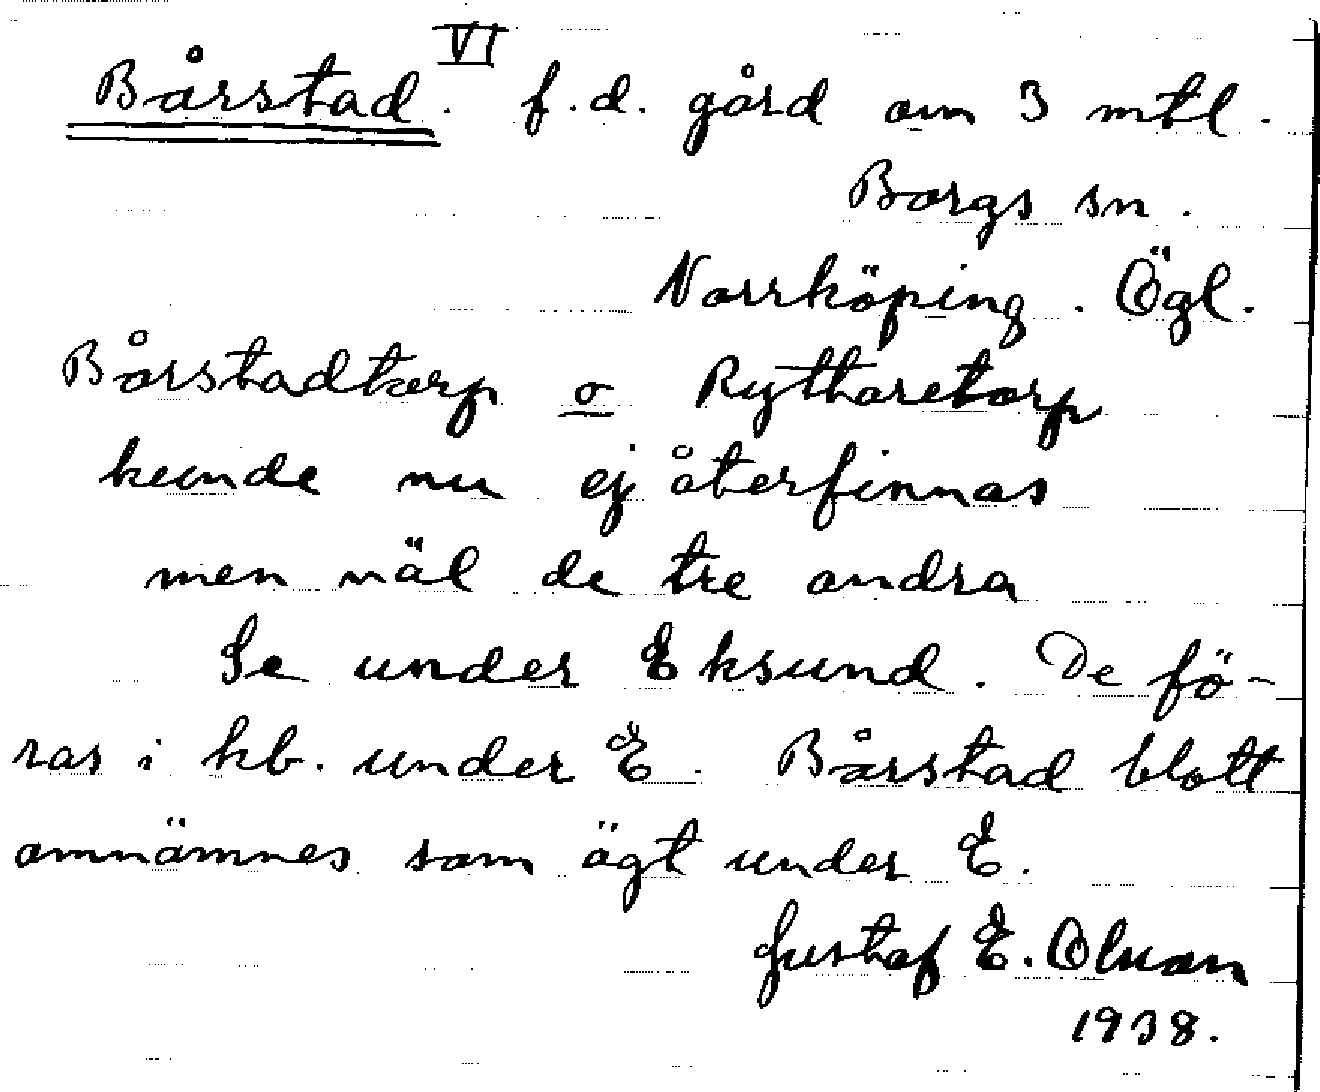 VI
Bårstad. f.d. gård om 3 mtl.
Borgs sn.
Norrköping. Ögl.
Bårstadtorp o Ryttaretorp
kunde nu ej återfinnas
men väl de tre andra
Se under Eksund. De fö-
ras i kb. under E. Bårstad blott
omnämnes som ägt under E.
Gustaf E. Olsson
1938.